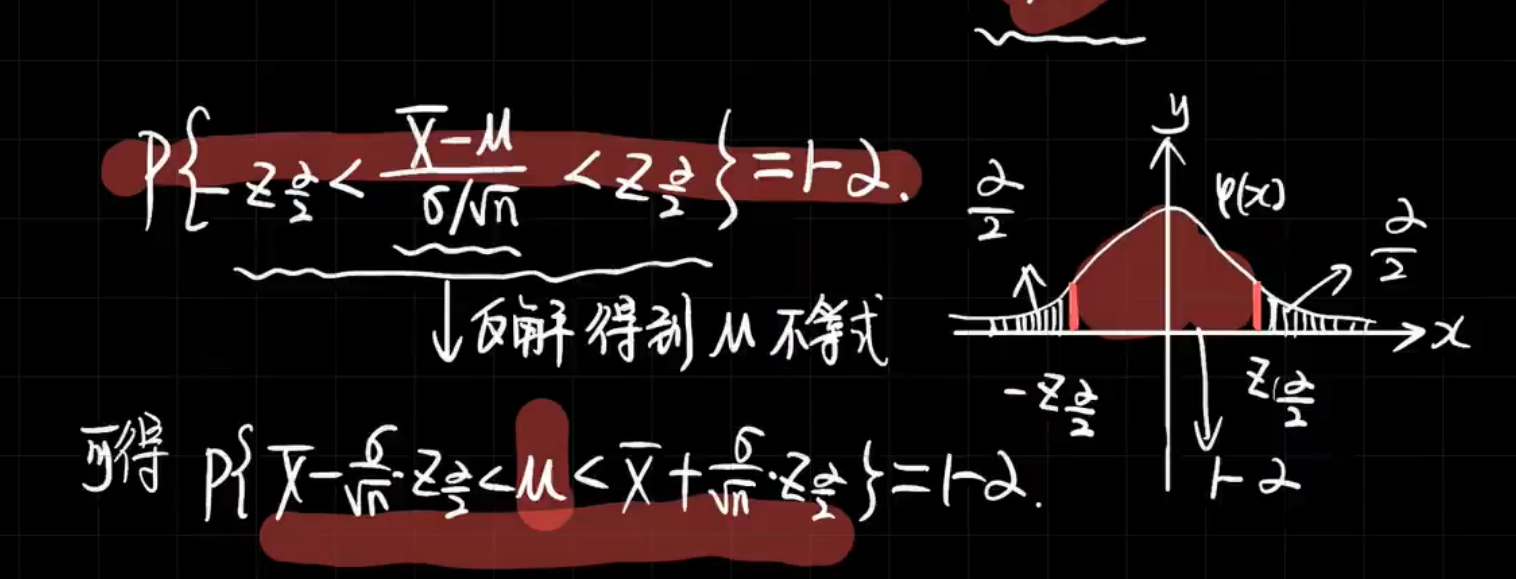 P{-z_{α/2} < \frac{\overline{X}-μ}{σ/√n} < z_{α/2}} = 1-α.
反解得到 μ 不等式
可得 P{\overline{X} - \frac{σ}{√n}·z_{α/2} < μ < \overline{X} + \frac{σ}{√n}·z_{α/2}} = 1-α.
y
α/2
φ(x)
α/2
x
-z_{α/2}
z_{α/2}
1-α